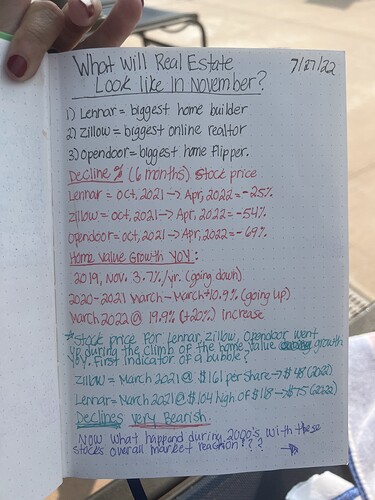 What Will Real Estate
Look like In November?
7/27/22
1) Lennar = biggest home builder
2) Zillow = biggest online realtor
3) Opendoor = biggest home flipper.
Decline % (6 months) Stock price
Lennar = Oct, 2021 → Apr, 2022 = -25%
Zillow = Oct, 2021 → Apr, 2022 = -54%
Opendoor = Oct, 2021 → Apr, 2022 = -69%
Home Value Growth YOY:
2019, Nov. 3.7%/yr. (going down)
2020-2021 March - March +10.9% (going up)
March 2022 @ 19.9% (+20%) Increase
*Stock price for Lennar, Zillow, Opendoor went
up during the climb of the home value growth
YOY. First indicator of a bubble?
Zillow = March 2021 @ $161 per share → $48 (2022)
Lennar = March 2021 @ $104 high of $118 → $75 (2022)
Declines very Bearish.
Now what happend during 2000's with these
stocks overall market reaction??? →